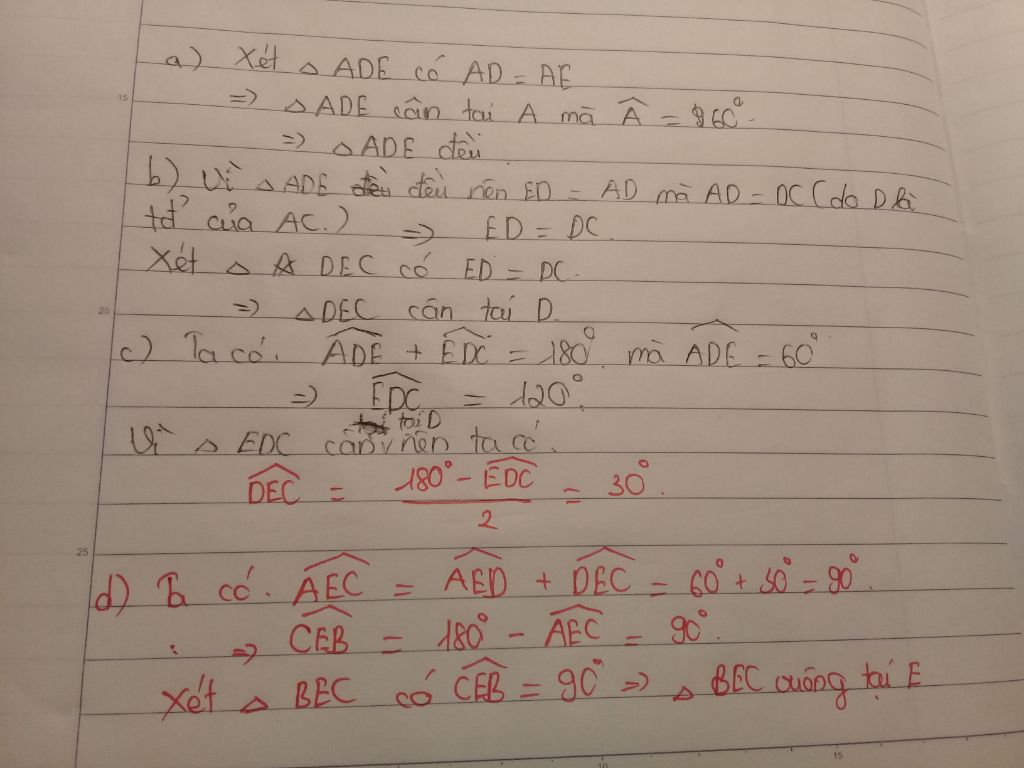 a) Xét △ ADE có AD = AE
15
=> △ ADE cân tại A mà Â = 60°.
=> △ ADE đều.
b) Vì △ ADE đều nên ED = AD mà AD = DC (do D là
tđ của AC.) => ED = DC.
Xét △ DEC có ED = DC.
20
=> △ DEC cân tại D.
c) Ta có. ADE + EDC = 180° mà ADE = 60°
=> EDC = 120°.
tại D
Vì △ EDC cân v nên ta có.
DEC = (180° - EDC) / 2 = 30°.
25
d) Ta có. AEC = AED + DEC = 60° + 30° = 90°.
=> CEB = 180° - AEC = 90°.
Xét △ BEC có CEB = 90° => △ BEC vuông tại E
10 15